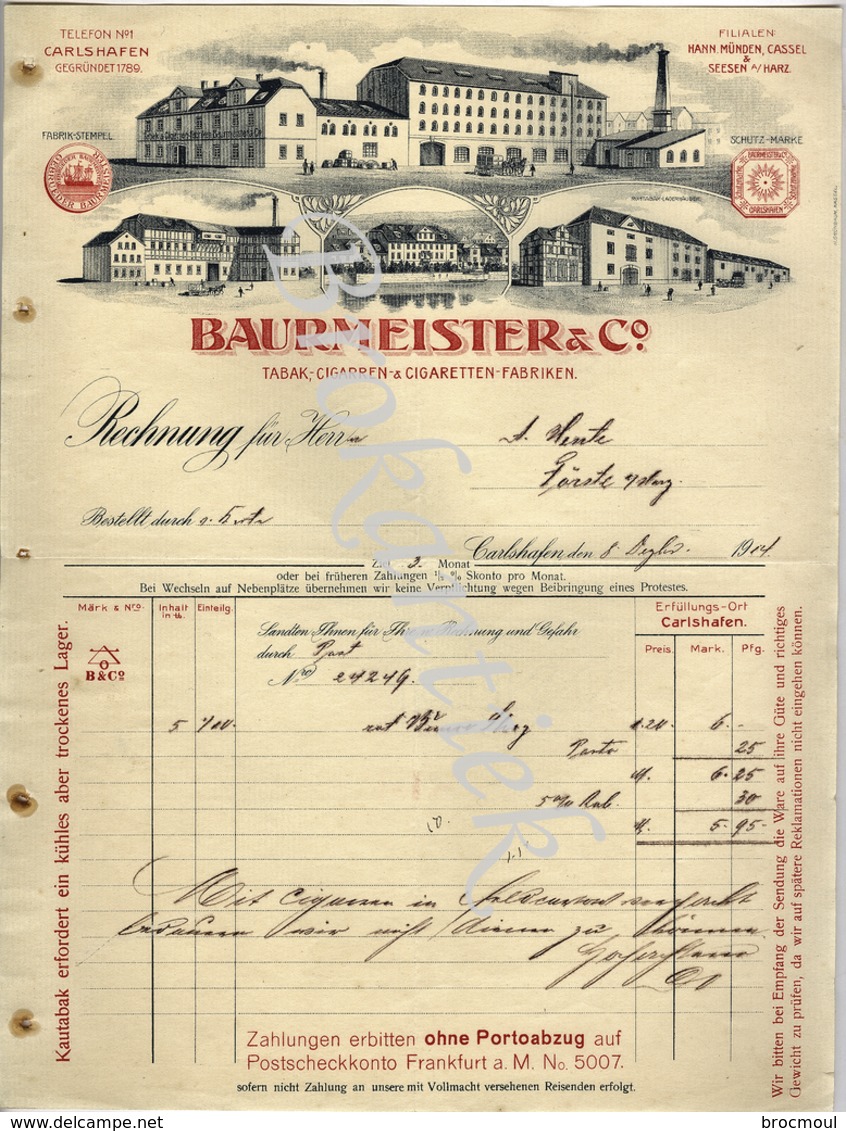 TELEFON No1
CARLSHAFEN
GEGRÜNDET 1789.
FILIALEN
HANN. MÜNDEN, CASSEL
&
SEESEN A/HARZ.
FABRIK-STEMPEL
SCHUTZ-MARKE
GEBRÜDER BAURMEISTER
BAURMEISTER & Co
CARLSHAFEN
ROHTABAK-LAGERHÄUSER
BAURMEISTER & Co.
TABAK,- CIGARREN- & CIGARETTEN-FABRIKEN.
Rechnung für Herrn
A. Hente
Förste a/Harz.
Bestellt durch
Carlshafen, den 8 Dezbr. 1914.
Ziel 3. Monat
oder bei früheren Zahlungen 1/2 % Skonto pro Monat.
Bei Wechseln auf Nebenplätze übernehmen wir keine Verpflichtung wegen Beibringung eines Protestes.
Märk & Nro. Inhalt in lb. Einteilg.
Erfüllungs-Ort
Carlshafen.
Preis. Mark. Pfg.
Sandten Ihnen für Ihre Rechnung und Gefahr
durch Post
Nro 24249.
B & Co
5 1.20. 6. -
Porto 25
M. 6. 25
5 % Rab. 30
M. 5. 95-
10.
Mit Cigarren in verpackt
bedauern wir nicht dienen zu können
Kautabak erfordert ein kühles aber trockenes Lager.
Wir bitten bei Empfang der Sendung die Ware auf ihre Güte und richtiges
Gewicht zu prüfen, da wir auf spätere Reklamationen nicht eingehen können.
Zahlungen erbitten ohne Portoabzug auf
Postscheckkonto Frankfurt a. M. No. 5007.
sofern nicht Zahlung an unsere mit Vollmacht versehenen Reisenden erfolgt.
Brokantiek
delcampe.net
brocmoul